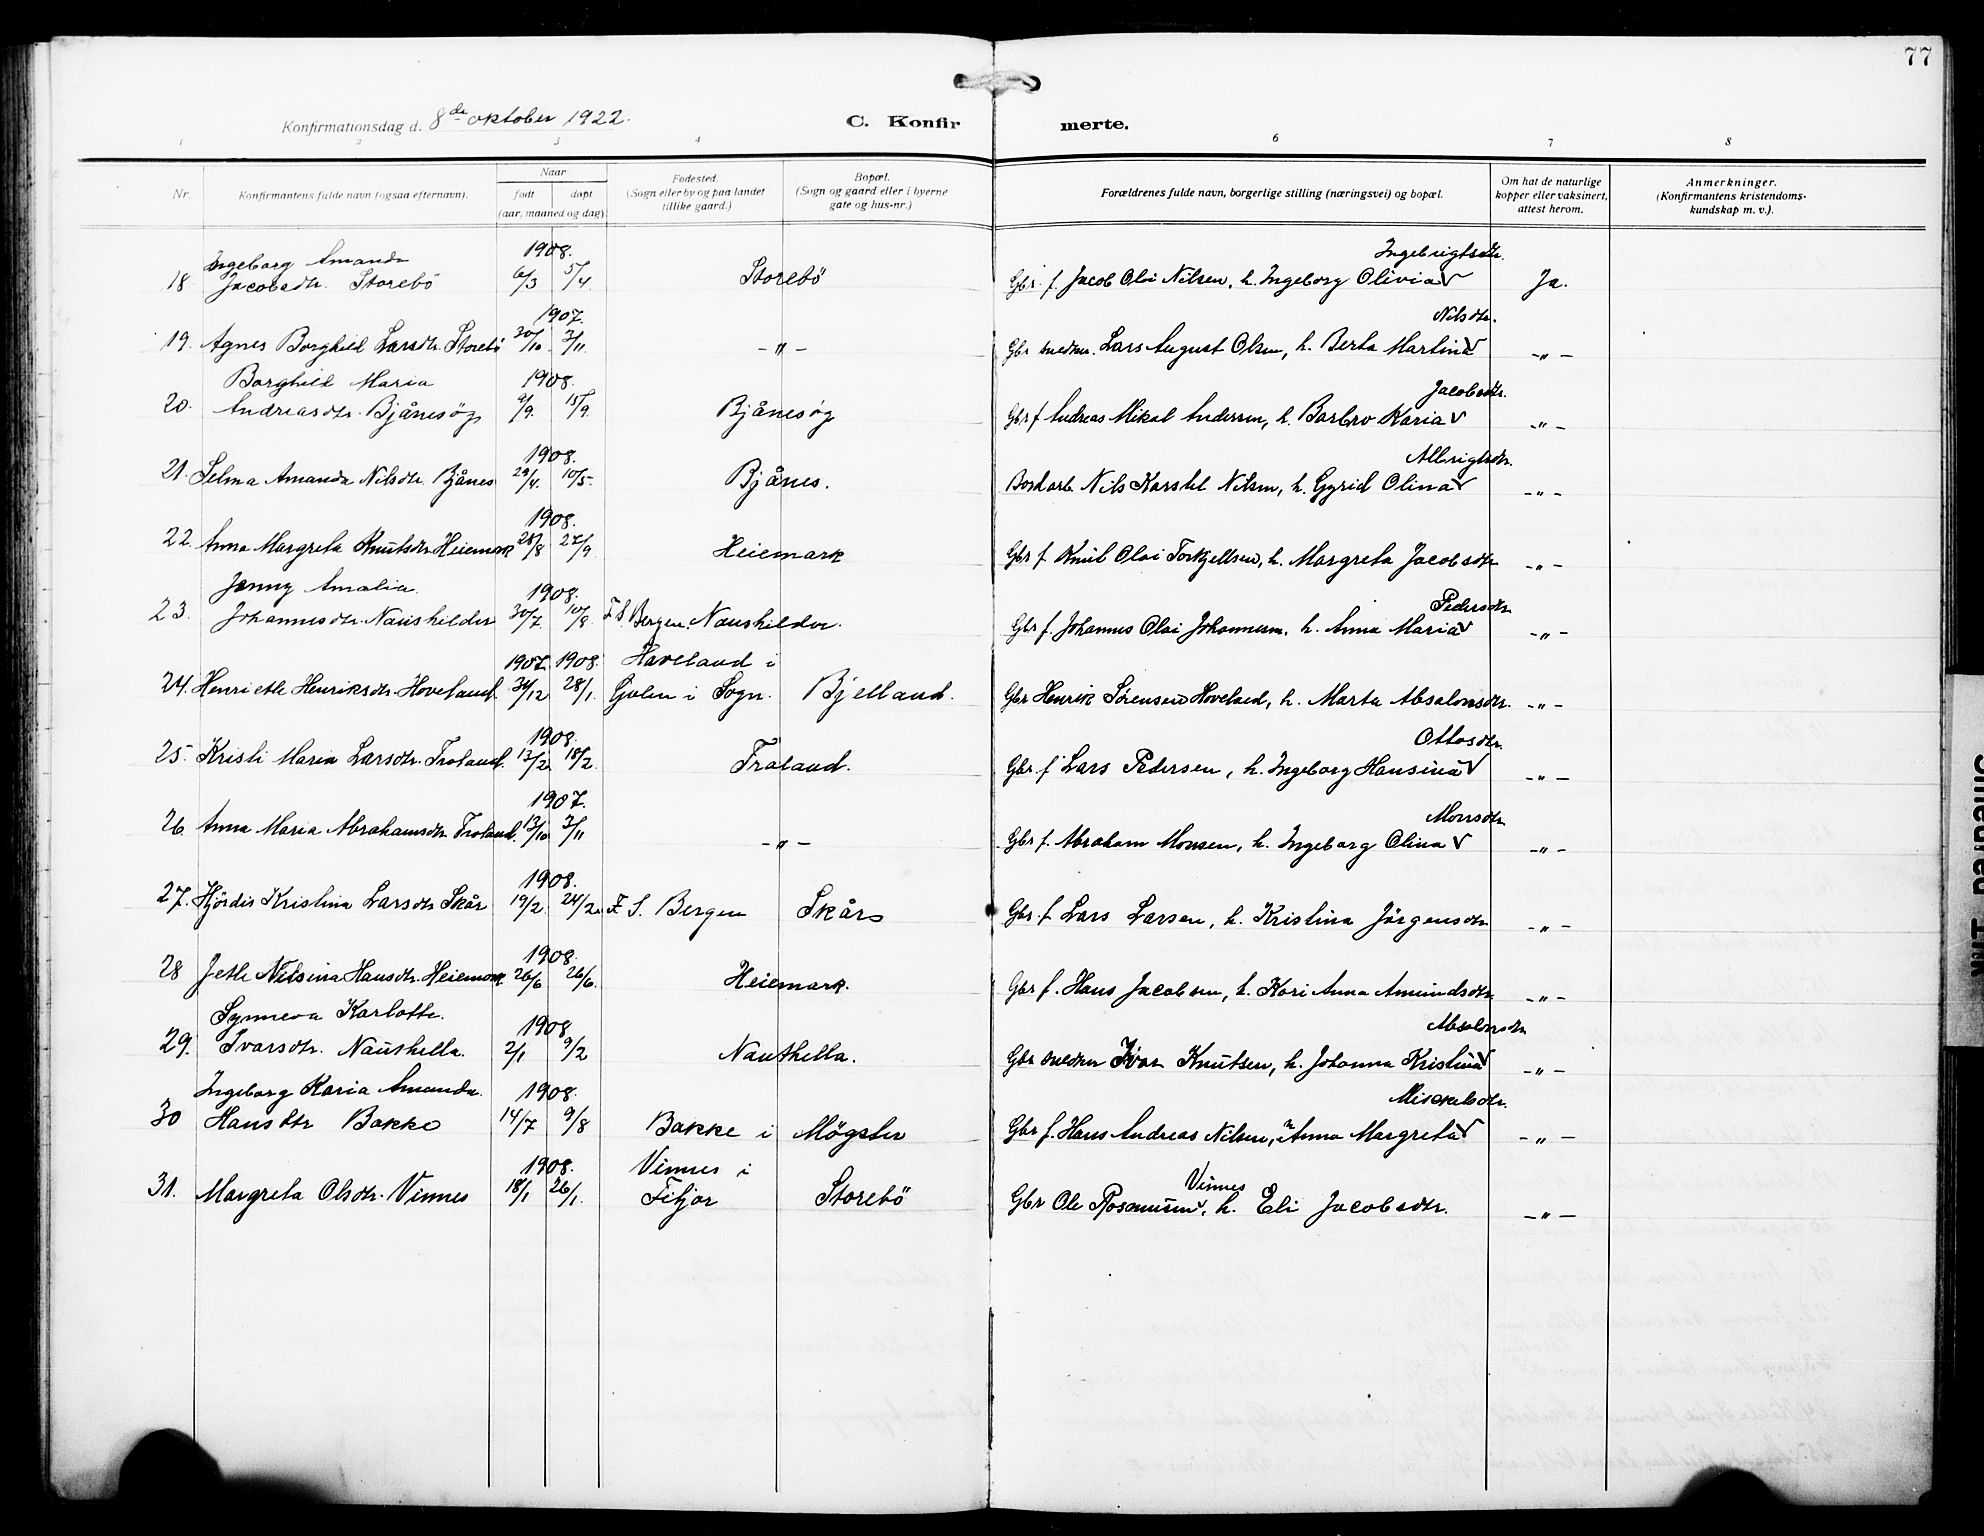 77
Konfirmationsdag d. 8de oktober 1922.
C. Konfirmerte.
1 2 3 4 6 7 8
Nr. Konfirmantens fulde navn (ogsaa efternavn). Naar født døpt (aar, maaned og dag) Fødested. (Sogn eller by og paa landet tillike gaard.) Bopæl. (Sogn og gaard eller i byerne gate og hus-nr.) Forældrenes fulde navn, borgerlige stilling (næringsvei) og bopæl. Om hat de naturlige kopper eller vaksinert, attest herom. Anmerkninger. (Konfirmantens kristendoms-kundskap m. v.).
Ingeborg Amanda 1908. Ingebrigtsdtr.
18 Jacobsdtr. Storebö 6/3 5/4 Storebö Gbr. f. Jacob Olai Nilsen, h. Ingeborg Olivia √ Ja.
1907. Nilsdtr.
19. Agnes Borghild Larsdtr. Storebö 30/10 3/11 -"- Gbr snedker. Lars August Olsen, h. Berta Martina √ -"-
Borghild Maria 1908. Jacobsdtr.
20. Andreasdtr. Bjånesög 4/9. 15/9 Bjånesög Gbr f Andreas Mikal Andersen, h. Barbro Karia √ -"-
1908. Albrigtsdtr.
21. Selma Amanda Nilsdtr. Bjånes 29/4. 10/5. Bjånes. Nils Karstel Nilsen, h. Gyrid Olina √ -"-
1908.
22. Anna Margreta Knutsdtr Heiemark 28/8 27/9 Heiemark Gbr f. Knut Olai Torkjellsen, h. Margreta Jacobsdtr -"-
Jenny Amalia. 1908. Pedersdtr
23. Johannesdtr. Naushilder 30/7. 10/8 F. S. Bergen. Naushilder. Gbr f. Johannes Olai Johannesen, h. Anna Maria √ -"-
1907. 1908. Haveland i
24. Henriette Henriksdtr. Hoveland 31/12 28/1. Gulen i Sogn. Bjelland. Gbr Henrik Sørensen Hoveland, h. Marta Absalonsdtr. -"-
1908. Ottosdtr.
25. Kristi Maria Larsdtr. Troland. 13/2 18/2. Troland. Gbr. f Lars Pedersen, h. Ingeborg Hansina √ -"-
1907. Monsdtr
26. Anna Maria Abrahamsdtr Troland. 13/10 3/11 -"- Gbr f. Abraham Monsen, h. Ingeborg Olina √ -"-
1908.
27. Hjördis Kristina Larsdtr Skår 19/2. 24/2. F. S. Bergen Skår Gbr. f Lars Larsen, h. Kristina Jörgensdtr -"-
1908.
28 Jette Nilsina Hansdtr. Heiemark 26/6 26/6. Heiemark. Gbr f. Hans Jacobsen, h. Kari Anna Amundsdtr -"-
Synneva Karlotte. 1908. Absalonsdtr
29. Ivarsdtr. Nauthella. 2/1 9/2 Nauthella. Gbr snedker Ivar Knutsen, h. Johanna Kristina √ -"-
Ingeborg Karia Amanda. 1908. Mickelsdtr.
30 Hansdtr Bakke 14/7 9/8 Bakke i Mögster Gbr f. Hans Andreas Nilsen, h Anna Margreta √ -"-
1908. Vinnes i Vinnes
31. Margreta Olsdtr. Vinnes 18/1 26/1. Fitjar Storebö Gbr Ole Rasmusen, h. Eli Jacobsdtr. -"-